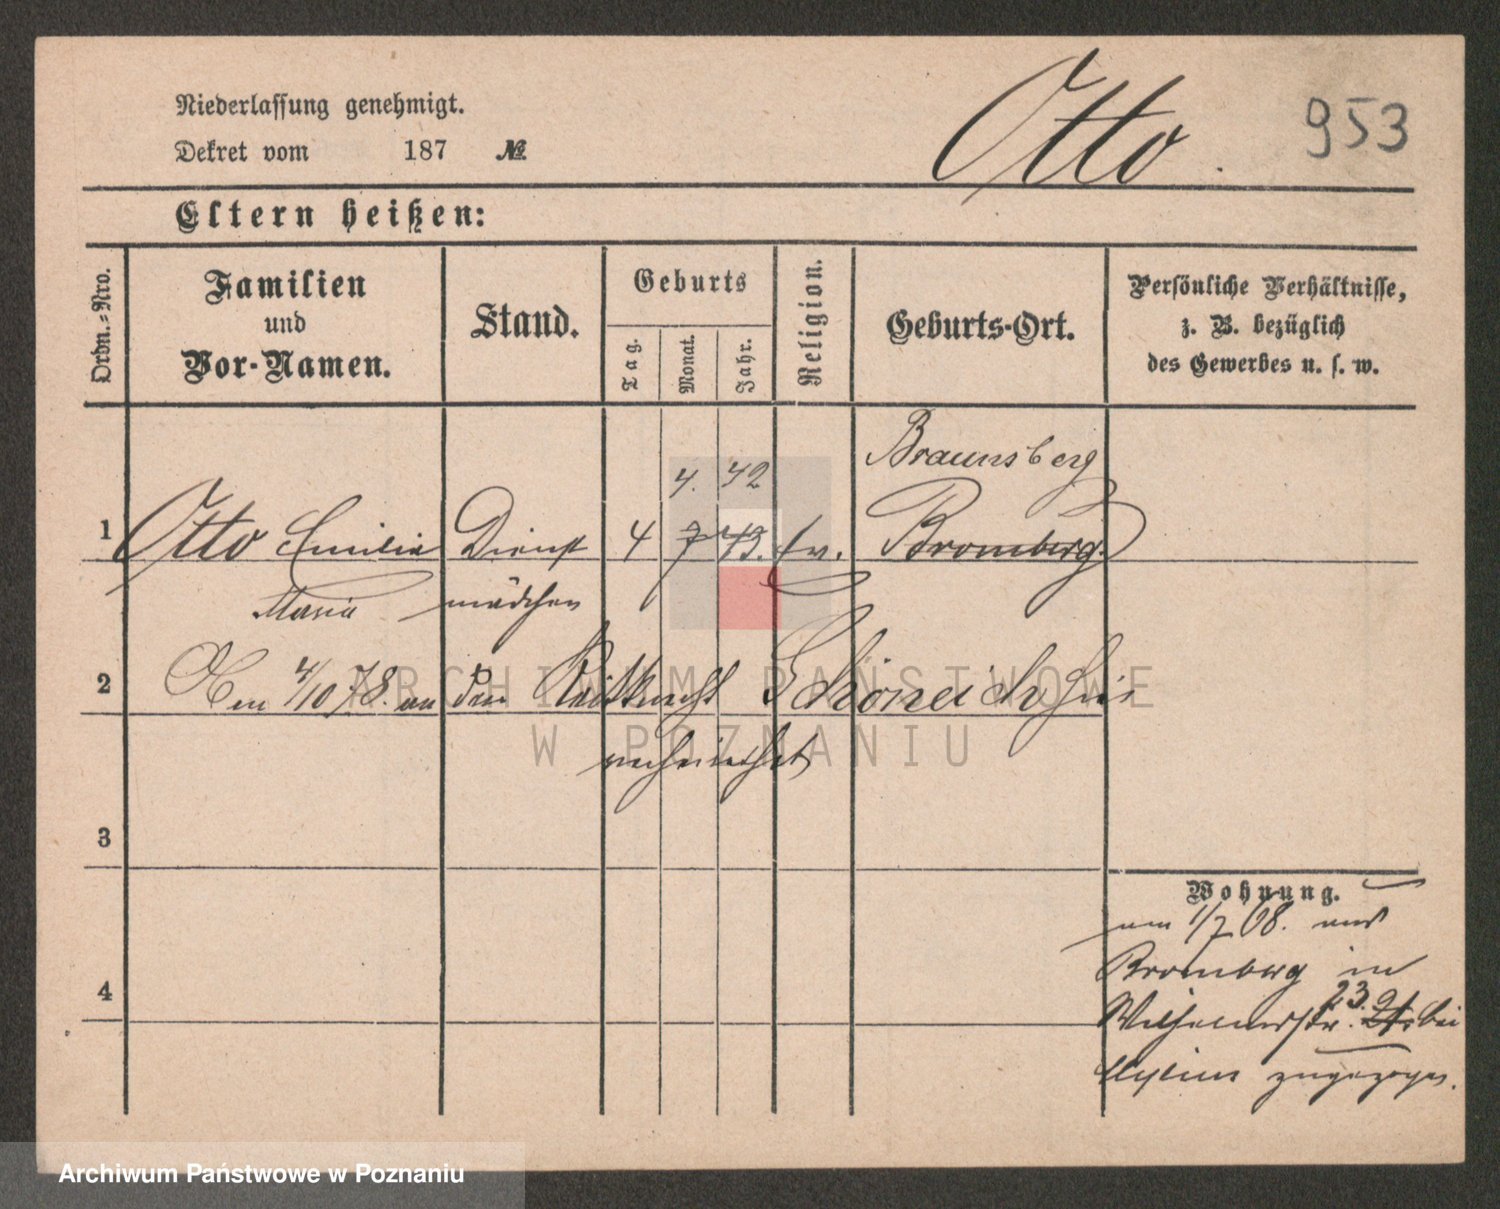 Otto. 953
Niederlassung genehmigt.
Dekret vom 187 №
Eltern heißen:
Ordn.-Nro.
Familien
und
Vor-Namen.
Stand.
Geburts
Tag.
Monat.
Jahr.
Religion.
Geburts-Ort.
Persönliche Verhältnisse,
z. B. bezüglich
des Gewerbes u. s. w.
4. 42 Braunsberg
1 Otto Emilie Dienst 4 7 43. ev. Bromberg.
Maria mädchen
2 Am 4/10 78. an den Reitknecht
verheirathet
3
Wohnung.
am 1/7 68. aus
Bromberg in
23.
4 Wilhelmstr. bei
Mylius zugezogen.
ARCHIWUM PAŃSTWOWE
W POZNANIU
Archiwum Państwowe w Poznaniu